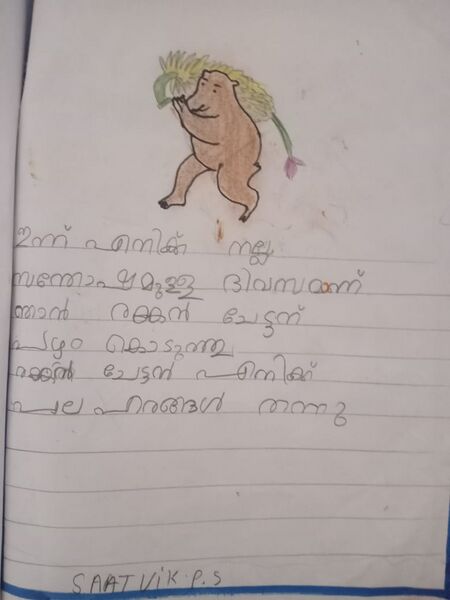 ഇന്ന് എനിക്ക് നല്ല
സന്തോഷമുള്ള ദിവസമാണ്
ഞാൻ രക്കൻ ചേട്ടന്
പഴം കൊടുത്തു
രക്കൻ ചേട്ടൻ എനിക്ക്
പല ഹാരങ്ങൾ തന്നു
SAATVIK.P.S